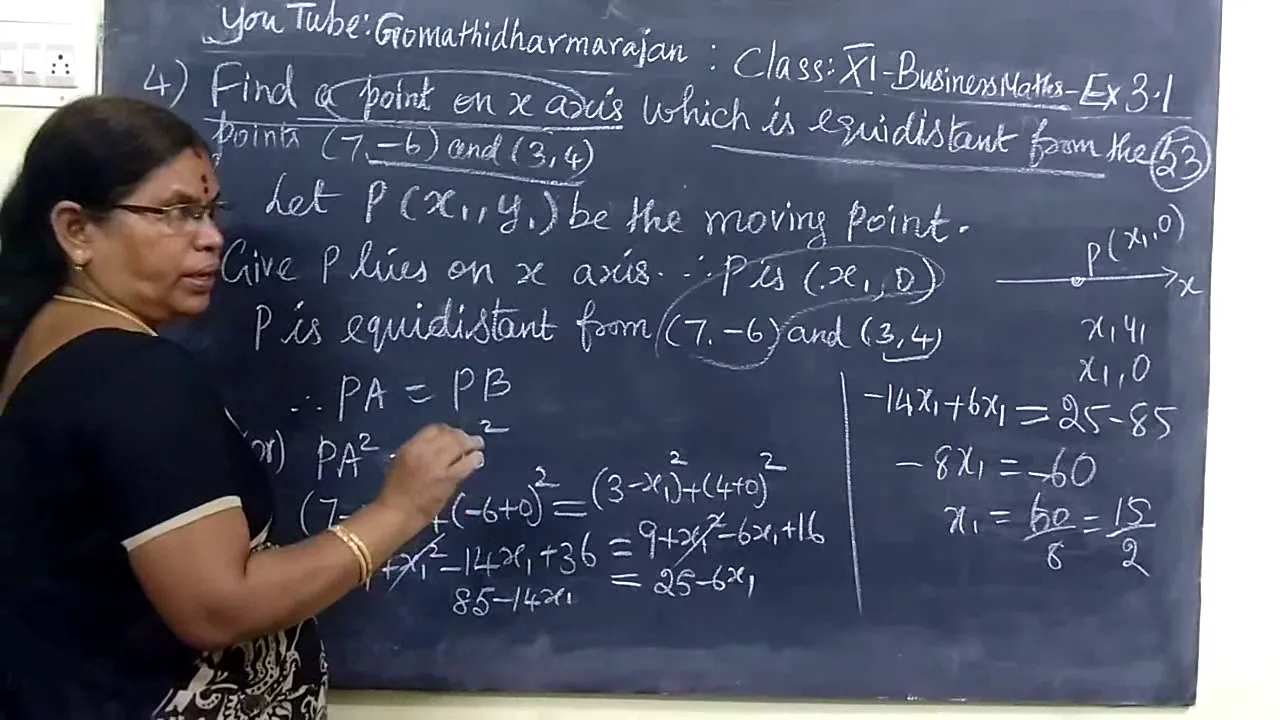 You Tube: Gomathidharmarajan : Class: XI - Business Maths - Ex 3.1
4) Find a point on x axis which is equidistant from the 53
points (7, -6) and (3, 4)
Let P(x₁, y₁) be the moving point.
Give P lies on x axis. ∴ P is (x₁, 0)
P is equidistant from (7, -6) and (3, 4)
∴ PA = PB
or) PA² 2
(7- + (-6+0)² = (3-x₁)² + (4+0)²
+x₁² -14x₁ +36 = 9+x₁² -6x₁ +16
85-14x₁ = 25-6x₁
P(x₁, 0)
x
x₁ y₁
x₁, 0
-14x₁+6x₁ = 25-85
-8x₁ = -60
x₁ = 60/8 = 15/2